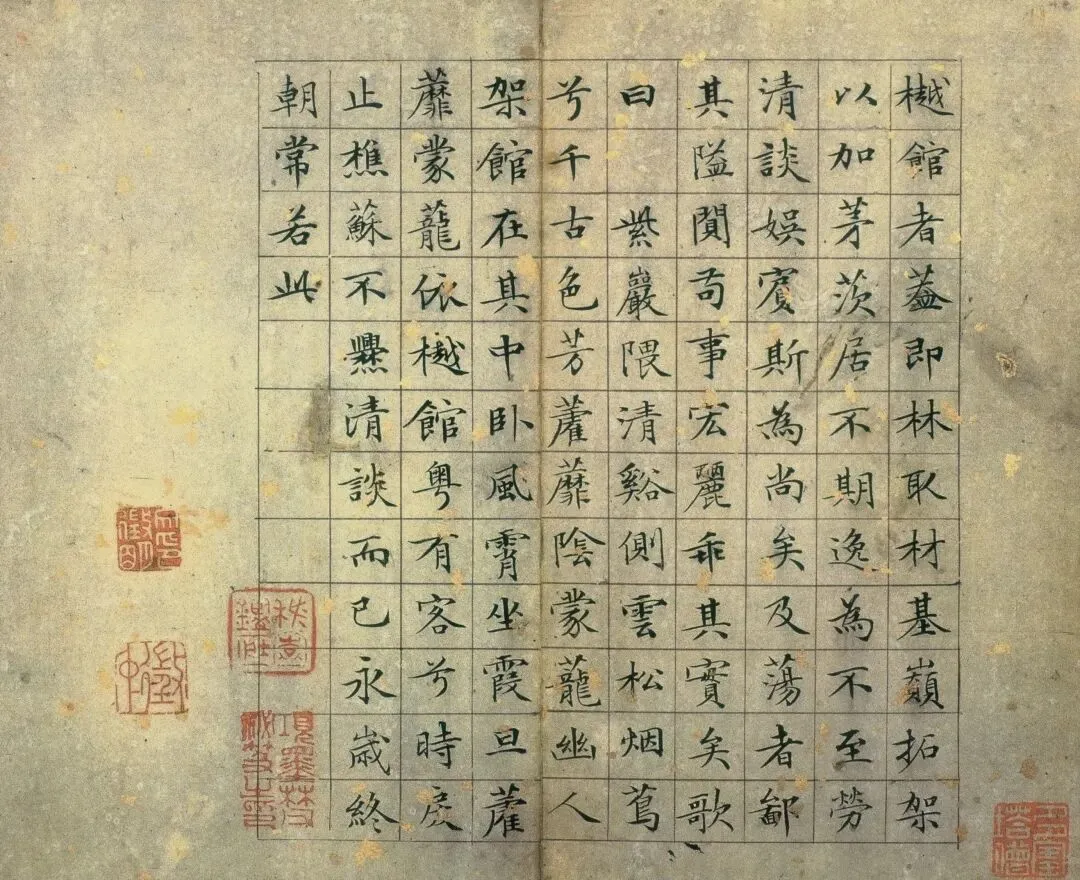 樾館者葢即林取材基巔拓架
以加茅茨居不期逸為不至勞
清談娯賔斯為尚矣及蕩者鄙
其隘閴苟事宏麗乖其實矣歌
曰 紫巖隈清谿側雲松烟蔦
兮千古色芳藋蘼陰蒙蘢幽人
架館在其中卧風霄坐霞旦藋
蘼蒙蘢依樾館粵有客兮時戾
止樵蘇不爨清談而已永歲終
朝常若此